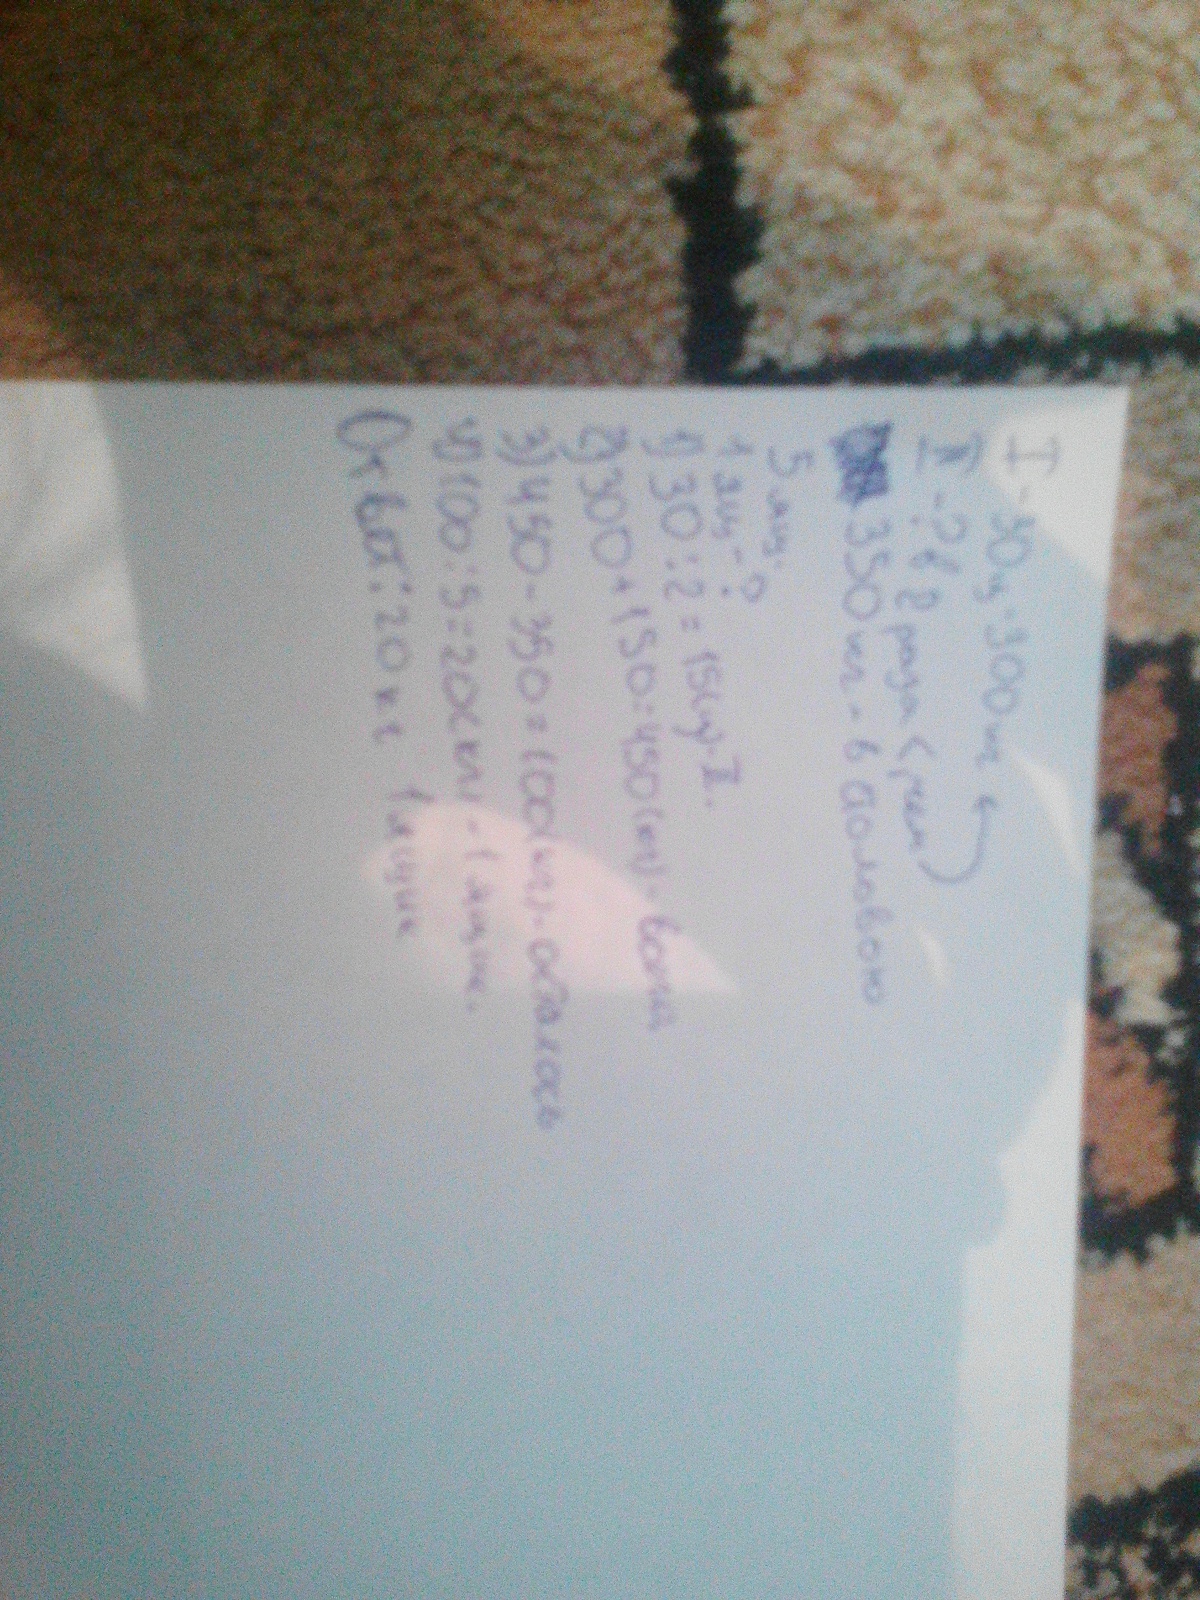 I - 30ц = 300кг
II - ? в 2 раза < чем
350 кг - в столовою
5 ящ.
1 ящ - ?
1) 30 : 2 = 15(ц) - II.
2) 300 + 150 = 450(кг) - всего
3) 450 - 350 = 100(кг) - осталось
4) 100 : 5 = 20(кг) - 1 ящик.
Ответ: 20 кг 1 ящик